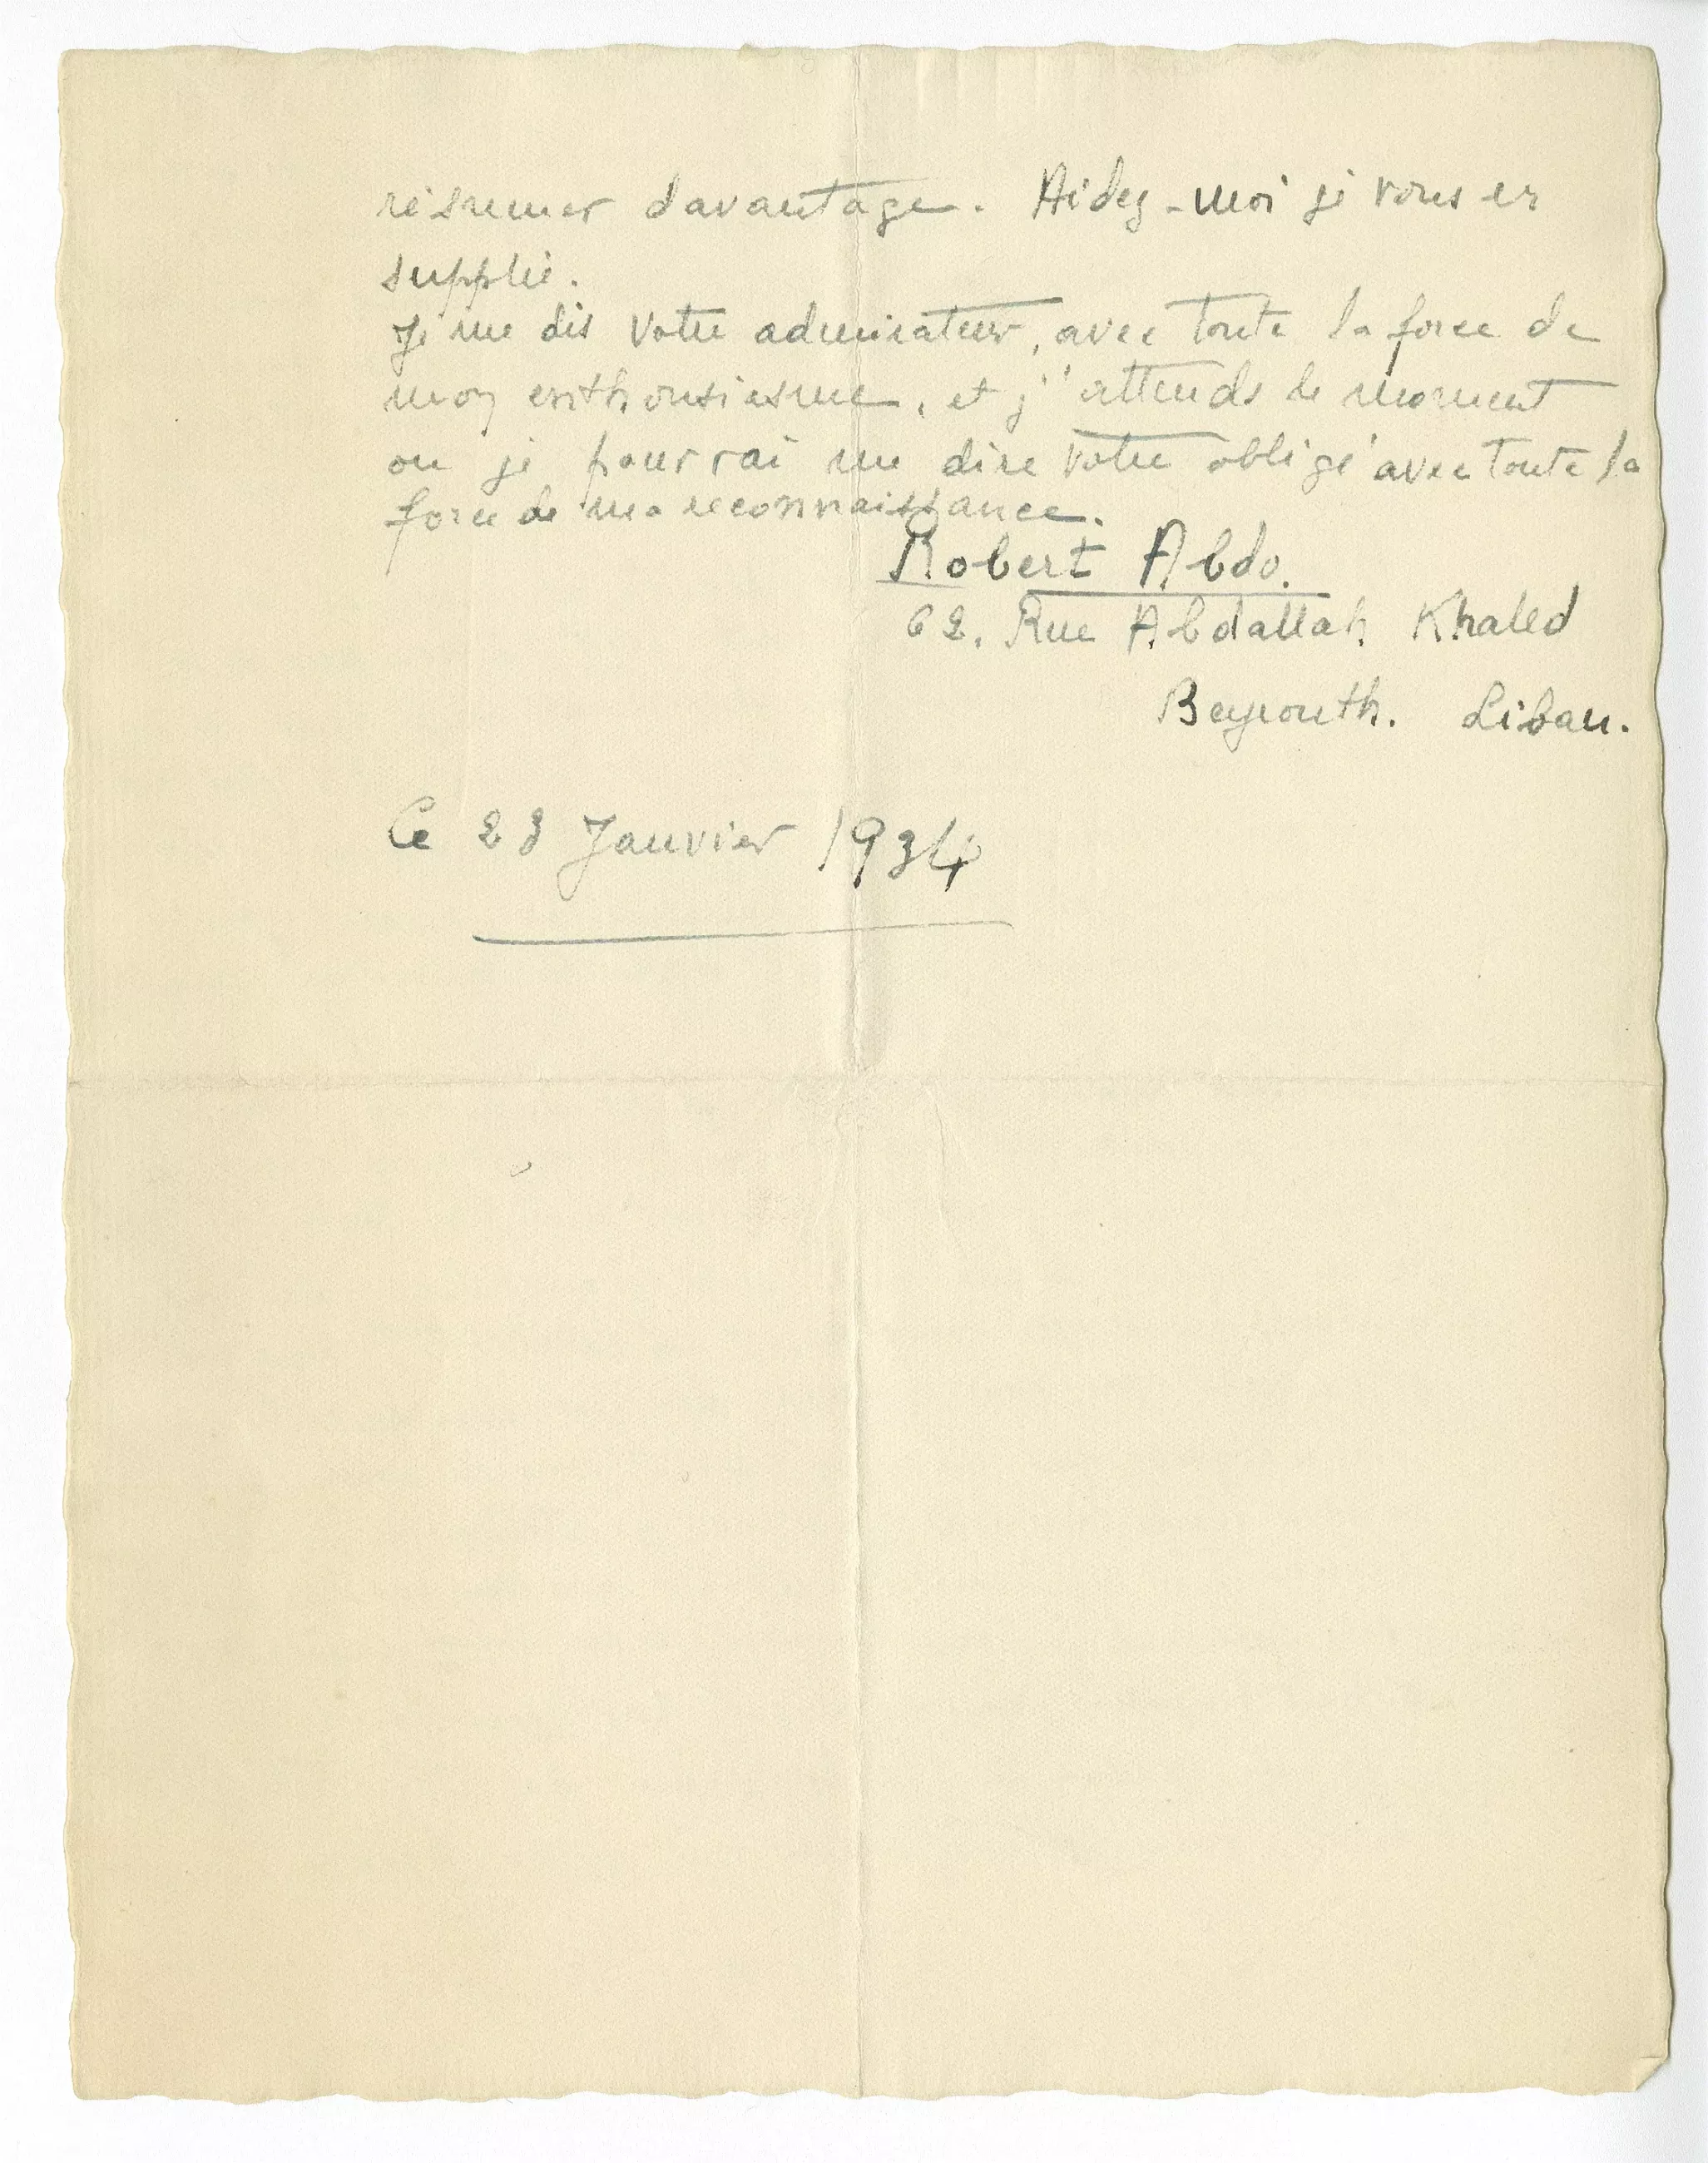 résumer davantage. Aidez-moi je vous en
supplie.
Je me dis votre admirateur, avec toute la force de
mon enthousiasme, et j'attends le moment
ou je pourrai me dire votre obligé avec toute la
force de ma reconnaissance.
Robert Abdo.
62. Rue Abdallah Khaled
Beyrouth. Liban.
Ce 23 Janvier 1934